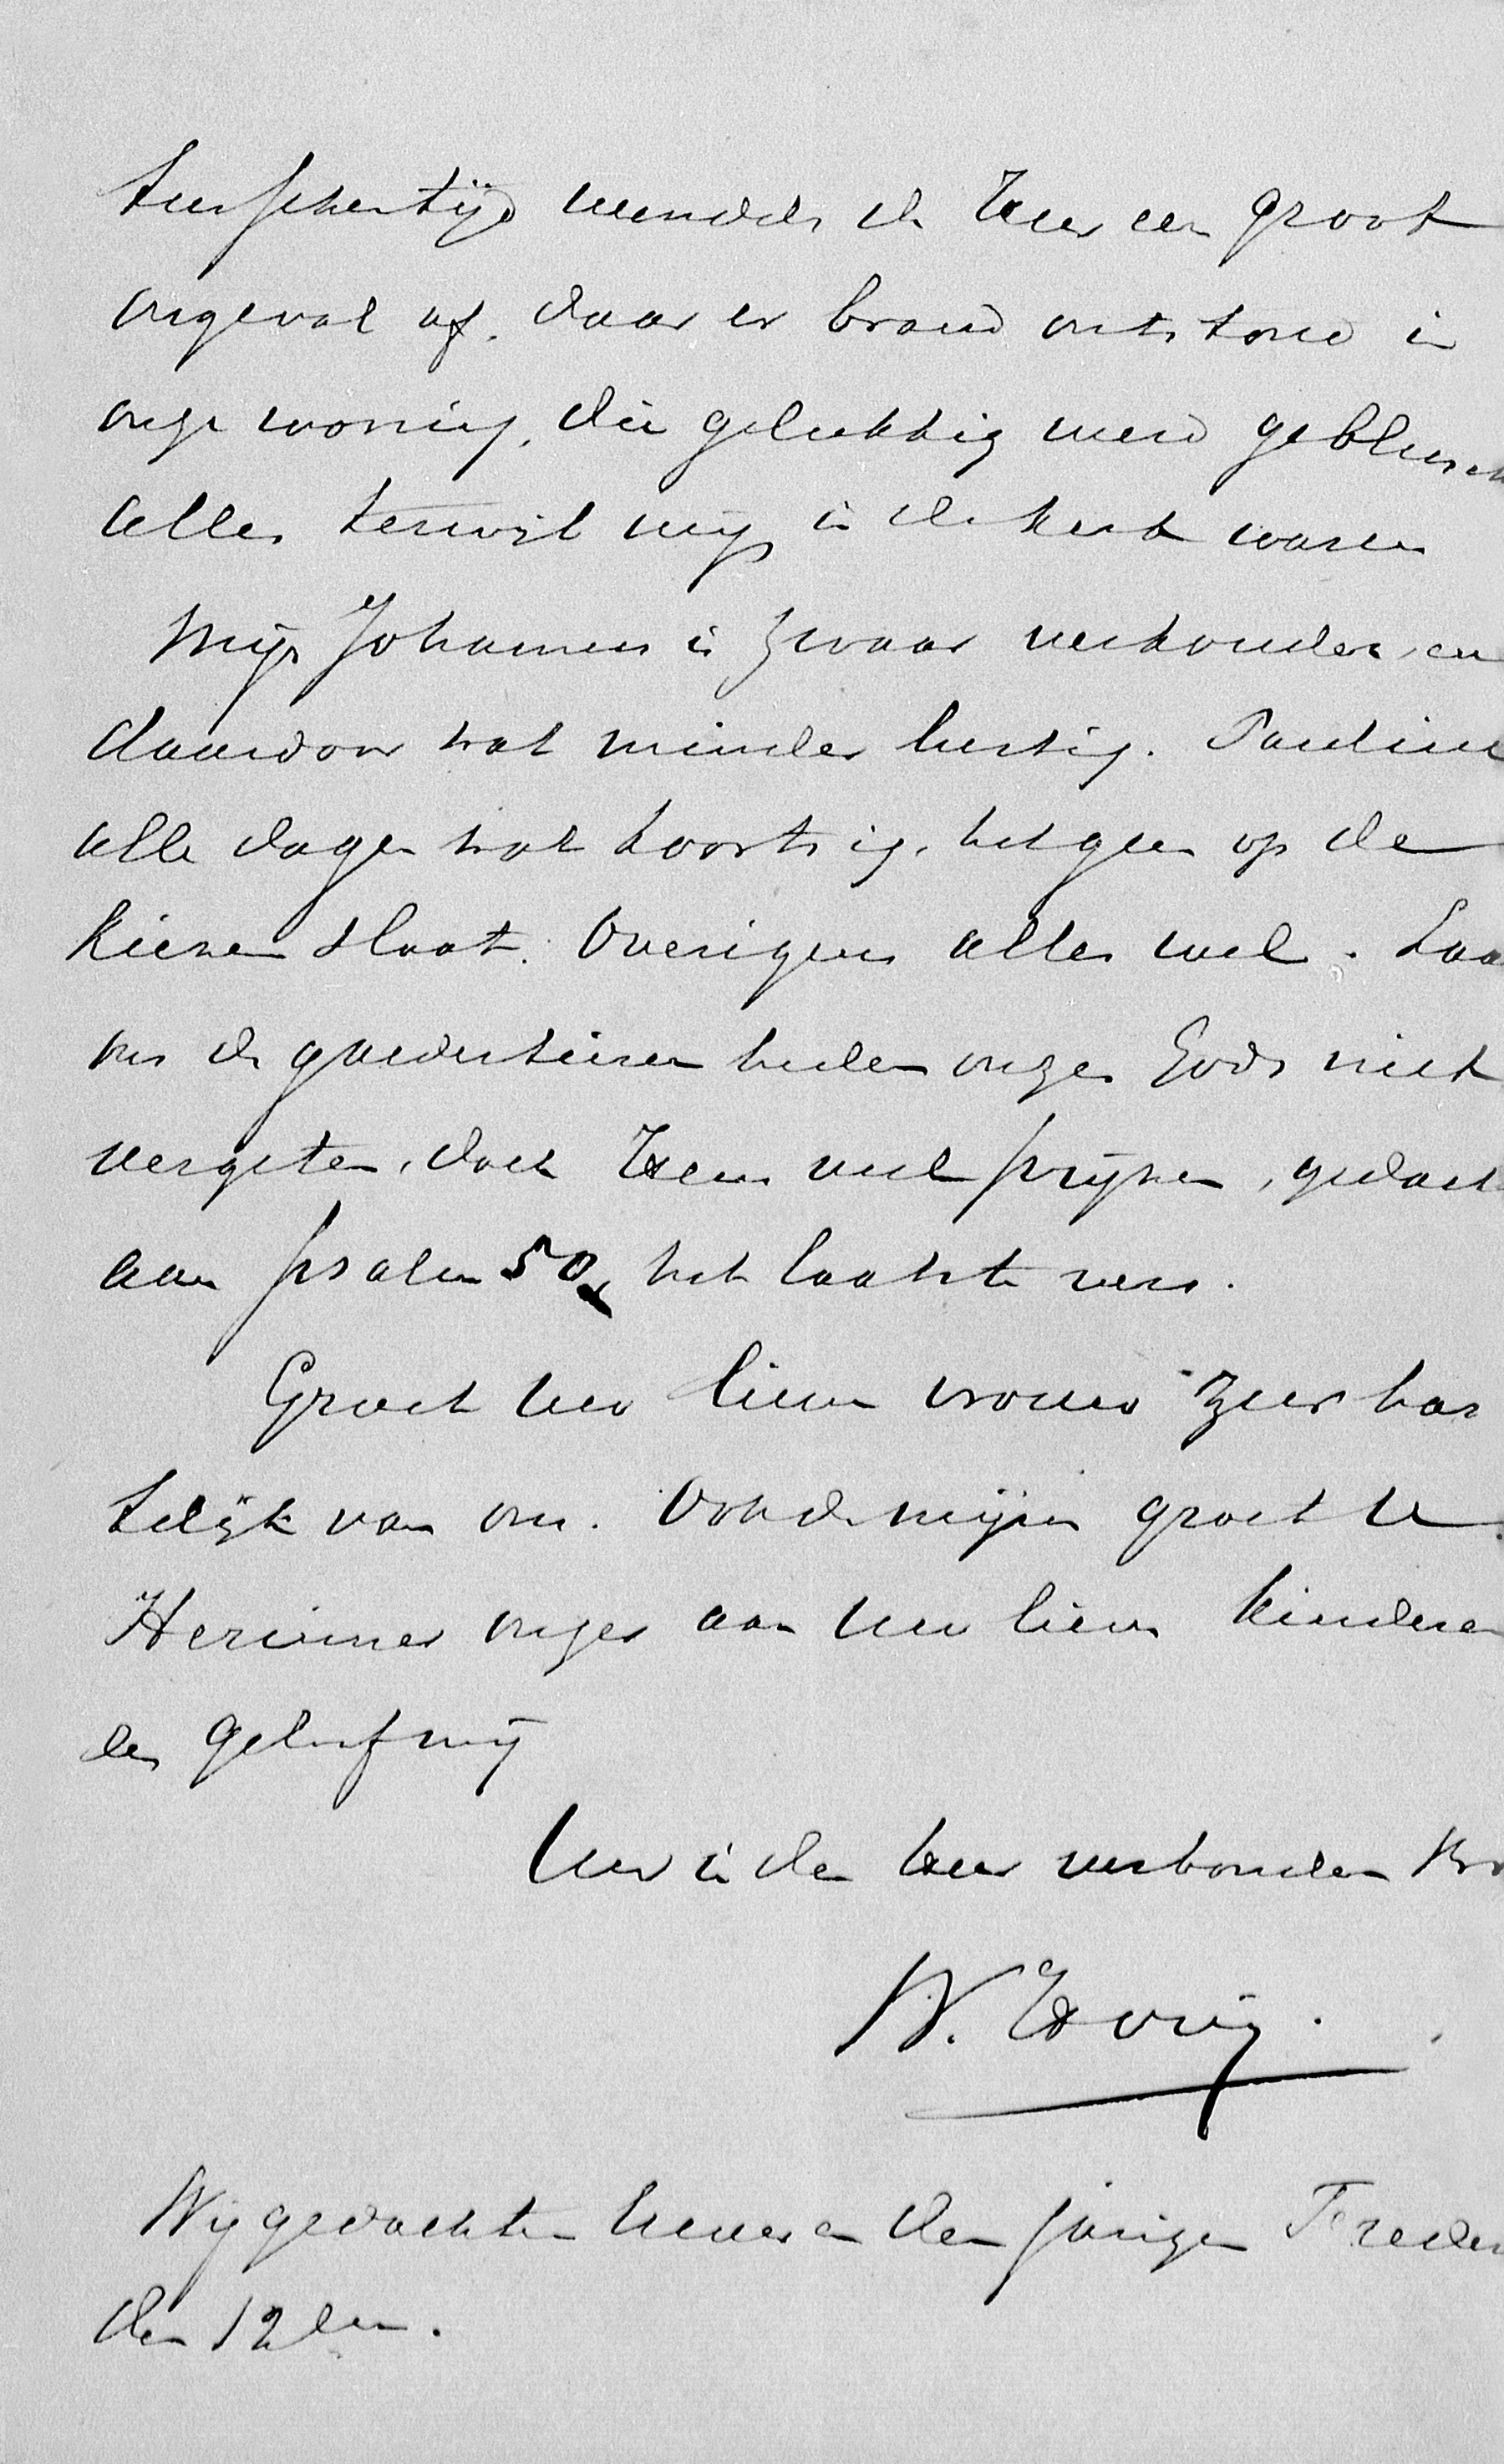 tusschentijd wendde de Heer een groot
ongeval af, daar er brand ontstond in
onze woning, die gelukkig werd geblusch
alles terwijl wij in de kerk waren
Mijn Johannes is zwaar verkouden, en
daardoor wat minder lustig. Pauline
alle dagen wat koortsig, hetgeen op de
kiezen slaat. Overigens alles wel. Laa
ons de goedertierenheden onzes Gods niet
vergeten, doch Hem veel prijzen, gedacht
aan psalm 50, het laatste vers.
Groet uw lieve vrouw zeer har
telijk van ons. Ook de mijne groet U.
Herinner onzer aan uw lieve kinderen
en geloof mij
Uw in den Heer verbonden Br
W. Hovy.
Wij gedachten heden den jarigen Freder
den 12den.